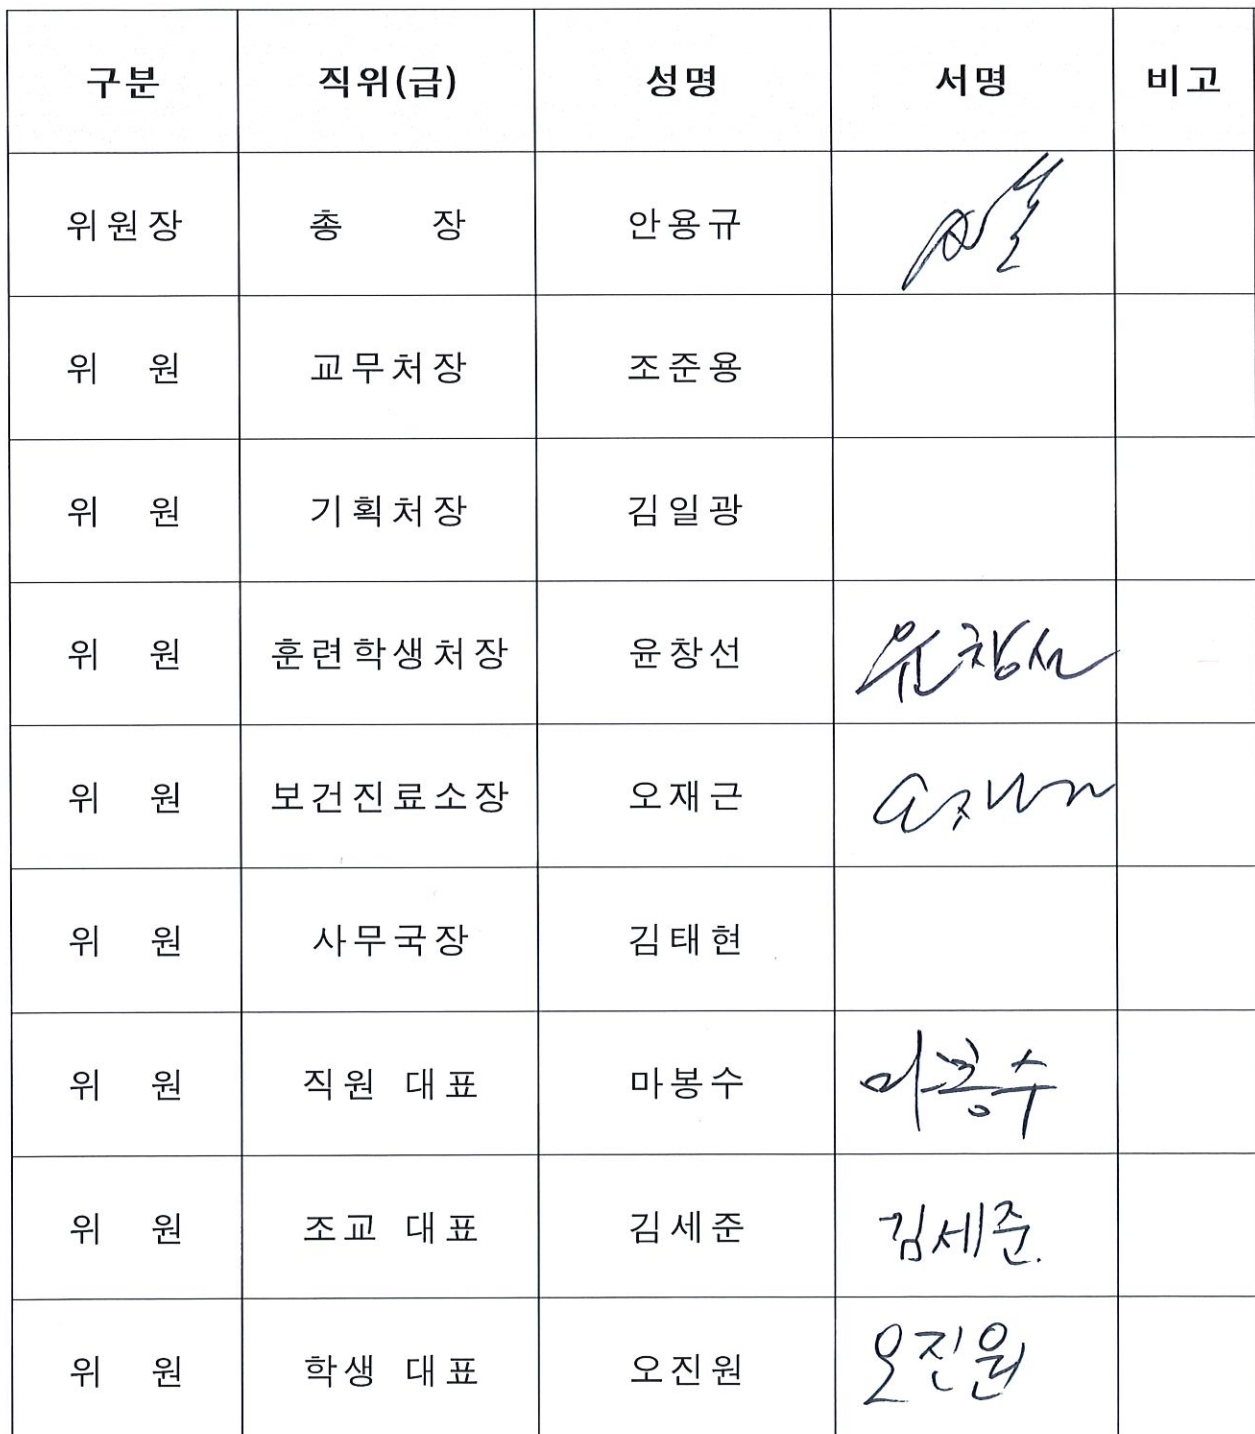 구분 직위(급) 성명 서명 비고
위원장 총 장 안용규
위 원 교무처장 조준용
위 원 기획처장 김일광
위 원 훈련학생처장 윤창선 윤창선
위 원 보건진료소장 오재근
위 원 사무국장 김태현
위 원 직원 대표 마봉수 마봉수
위 원 조교 대표 김세준 김세준.
위 원 학생 대표 오진원 오진원